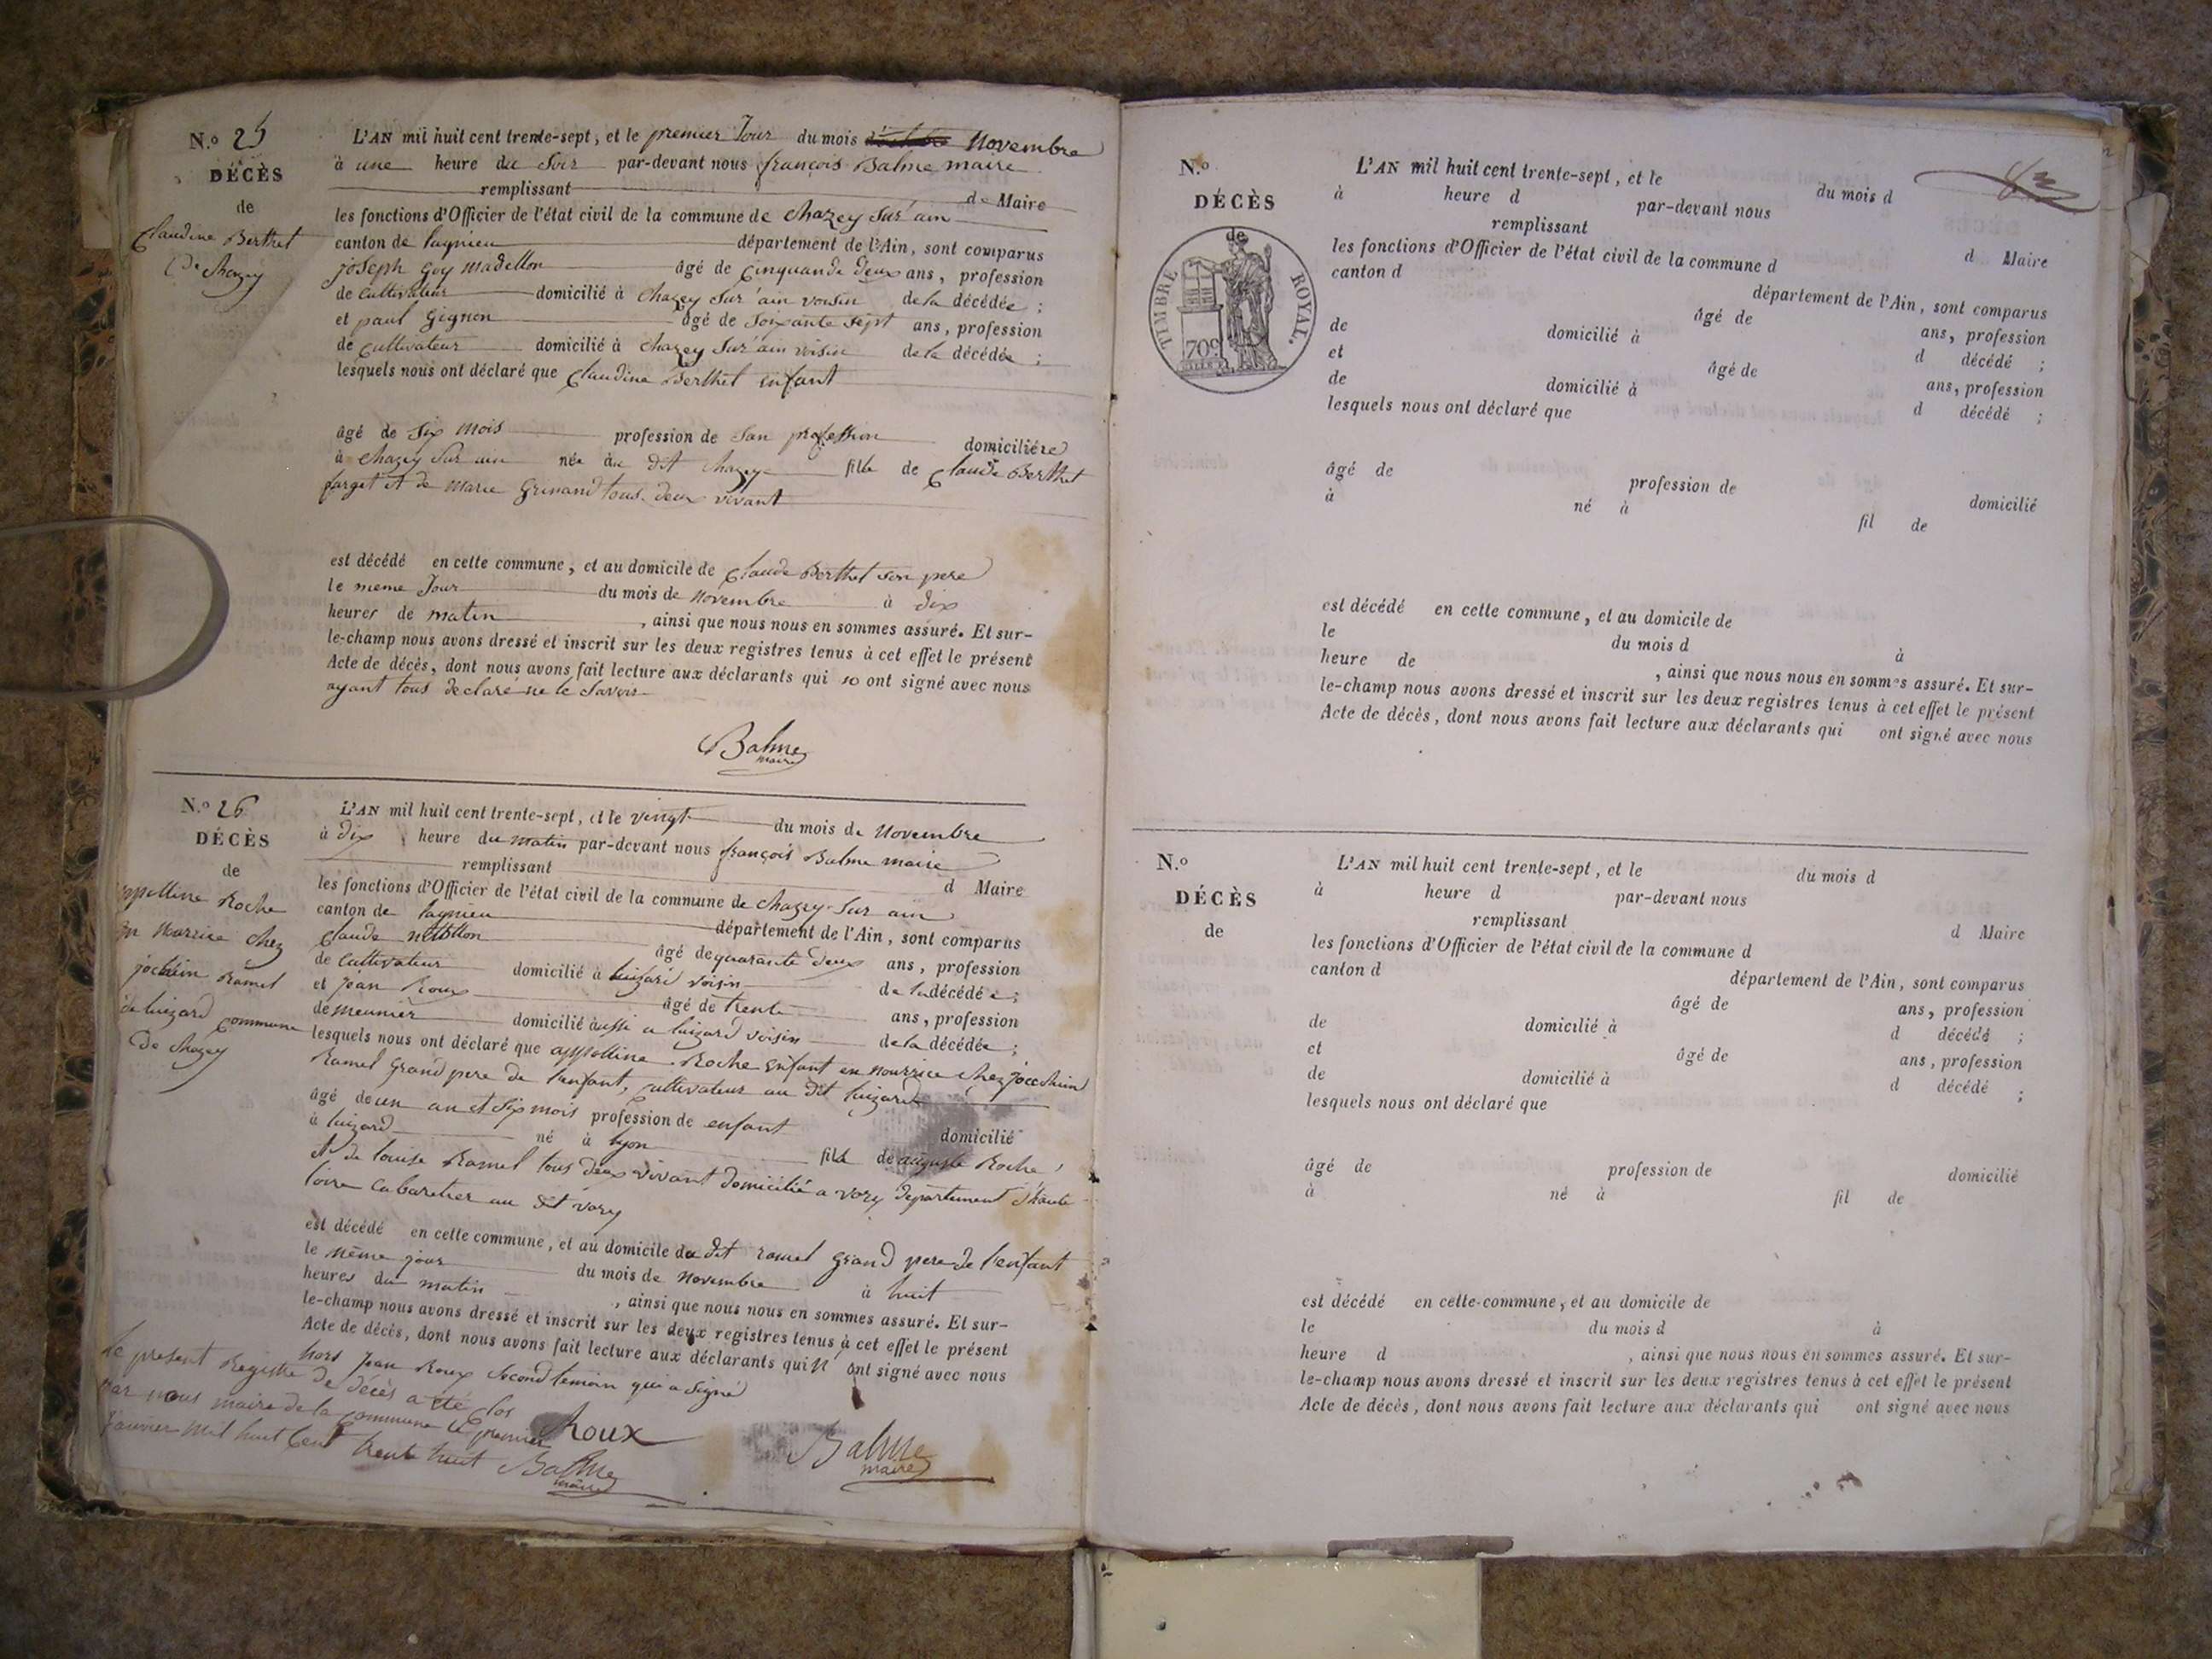 N.º 25
DÉCÈS
de
Claudine Berthet
De chazey
L'AN mil huit cent trente-sept, et le premier Jour du mois d'octobre Novembre
à une heure du Soir par-devant nous françois Balme maire
remplissant de Maire
les fonctions d'Officier de l'état civil de la commune de chazey Sur ain
canton de lagnieu département de l'Ain, sont comparus
joseph Goy madellon âgé de Cinquante deux ans, profession
de Cultivateur domicilié à chazey Sur ain voisin de la décédée ;
et paul Gignon âgé de Soixante Sept ans, profession
de Cultivateur domicilié à chazey Sur ain voisin de la décédée ;
lesquels nous ont déclaré que Claudine Berthet enfant
âgé de Six mois profession de San profession domiciliére
à chazey Sur ain née au dit chazey fille de Claude Berthet
farget et de marie Grinand tous deux vivant
est décédé en cette commune, et au domicile de Claude Berthet son pere
le meme Jour du mois de novembre à dix
heures de matin , ainsi que nous nous en sommes assuré. Et sur-
le-champ nous avons dressé et inscrit sur les deux registres tenus à cet effet le présent
Acte de décès, dont nous avons fait lecture aux déclarants qui no ont signé avec nous
ayant tous declaré ne le Savoir
Balme
maire
N.º 26
DÉCÈS
de
appolline Roche
en Nourrice chez
jochim Ramel
de luizard Commune
De chazey
L'AN mil huit cent trente-sept, et le vingt du mois de Novembre
à Dix heure du matin par-devant nous françois Balme maire
remplissant d Maire
les fonctions d'Officier de l'état civil de la commune de chazey Sur ain
canton de lagnieu département de l'Ain, sont comparus
Claude âgé de quarante deux ans, profession
de Cultivateur domicilié à luizard voisin de la décédée ;
et jean Roux âgé de trente ans, profession
de meunier domicilié aussi a luizard voisin de la décédée ;
lesquels nous ont déclaré que appolline Roche enfant en nourrice chez jocchim
Ramel Grand pere de l'enfant, cultivateur au dit luizard
âgé de un an et Six mois profession de enfant domicilié
à luizard né à lyon fille de auguste Roche
et de louise Ramel tous deux vivant domicilié a vory département d'haute
loire Cabaretier au dit vory
est décédé en cette commune, et au domicile du dit ramel grand pere de l'enfant
le même jour du mois de novembre à huit
heures du matin , ainsi que nous nous en sommes assuré. Et sur-
le-champ nous avons dressé et inscrit sur les deux registres tenus à cet effet le présent
Acte de décès, dont nous avons fait lecture aux déclarants qui n' ont signé avec nous
hors Jean Roux Second temoin qui a Signé
le present Registre de décès a eté clos
par nous maire de la Commune le premier
janvier mil huit Cent trente huit
Roux
Balme
maire
Balme
maire
N.º
DÉCÈS
de
TIMBRE ROYAL.
70c
L'AN mil huit cent trente-sept, et le du mois d
à heure d par-devant nous
remplissant d Maire
les fonctions d'Officier de l'état civil de la commune d
canton d département de l'Ain, sont comparus
âgé de ans, profession
de domicilié à d décédé ;
et âgé de ans, profession
de domicilié à d décédé ;
lesquels nous ont déclaré que
âgé de profession de domicilié
à né à fil de
est décédé en cette commune, et au domicile de
le du mois d à
heure de , ainsi que nous nous en sommes assuré. Et sur-
le-champ nous avons dressé et inscrit sur les deux registres tenus à cet effet le présent
Acte de décès, dont nous avons fait lecture aux déclarants qui ont signé avec nous
N.º
DÉCÈS
de
L'AN mil huit cent trente-sept, et le du mois d
à heure d par-devant nous
remplissant d Maire
les fonctions d'Officier de l'état civil de la commune d
canton d département de l'Ain, sont comparus
âgé de ans, profession
de domicilié à d décédé ;
et âgé de ans, profession
de domicilié à d décédé ;
lesquels nous ont déclaré que
âgé de profession de domicilié
à né à fil de
est décédé en cette commune, et au domicile de
le du mois d à
heure d , ainsi que nous nous en sommes assuré. Et sur-
le-champ nous avons dressé et inscrit sur les deux registres tenus à cet effet le présent
Acte de décès, dont nous avons fait lecture aux déclarants qui ont signé avec nous